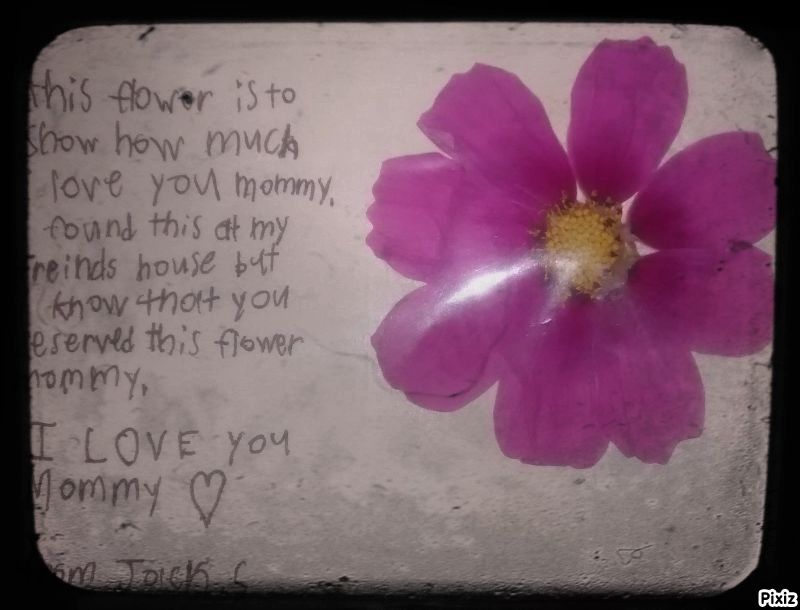 this flower is to
show how much
love you mommy.
found this at my
freinds house but
know that you
eserved this flower
mommy.
I LOVE you
Mommy ♡
om Jack S
Pixiz